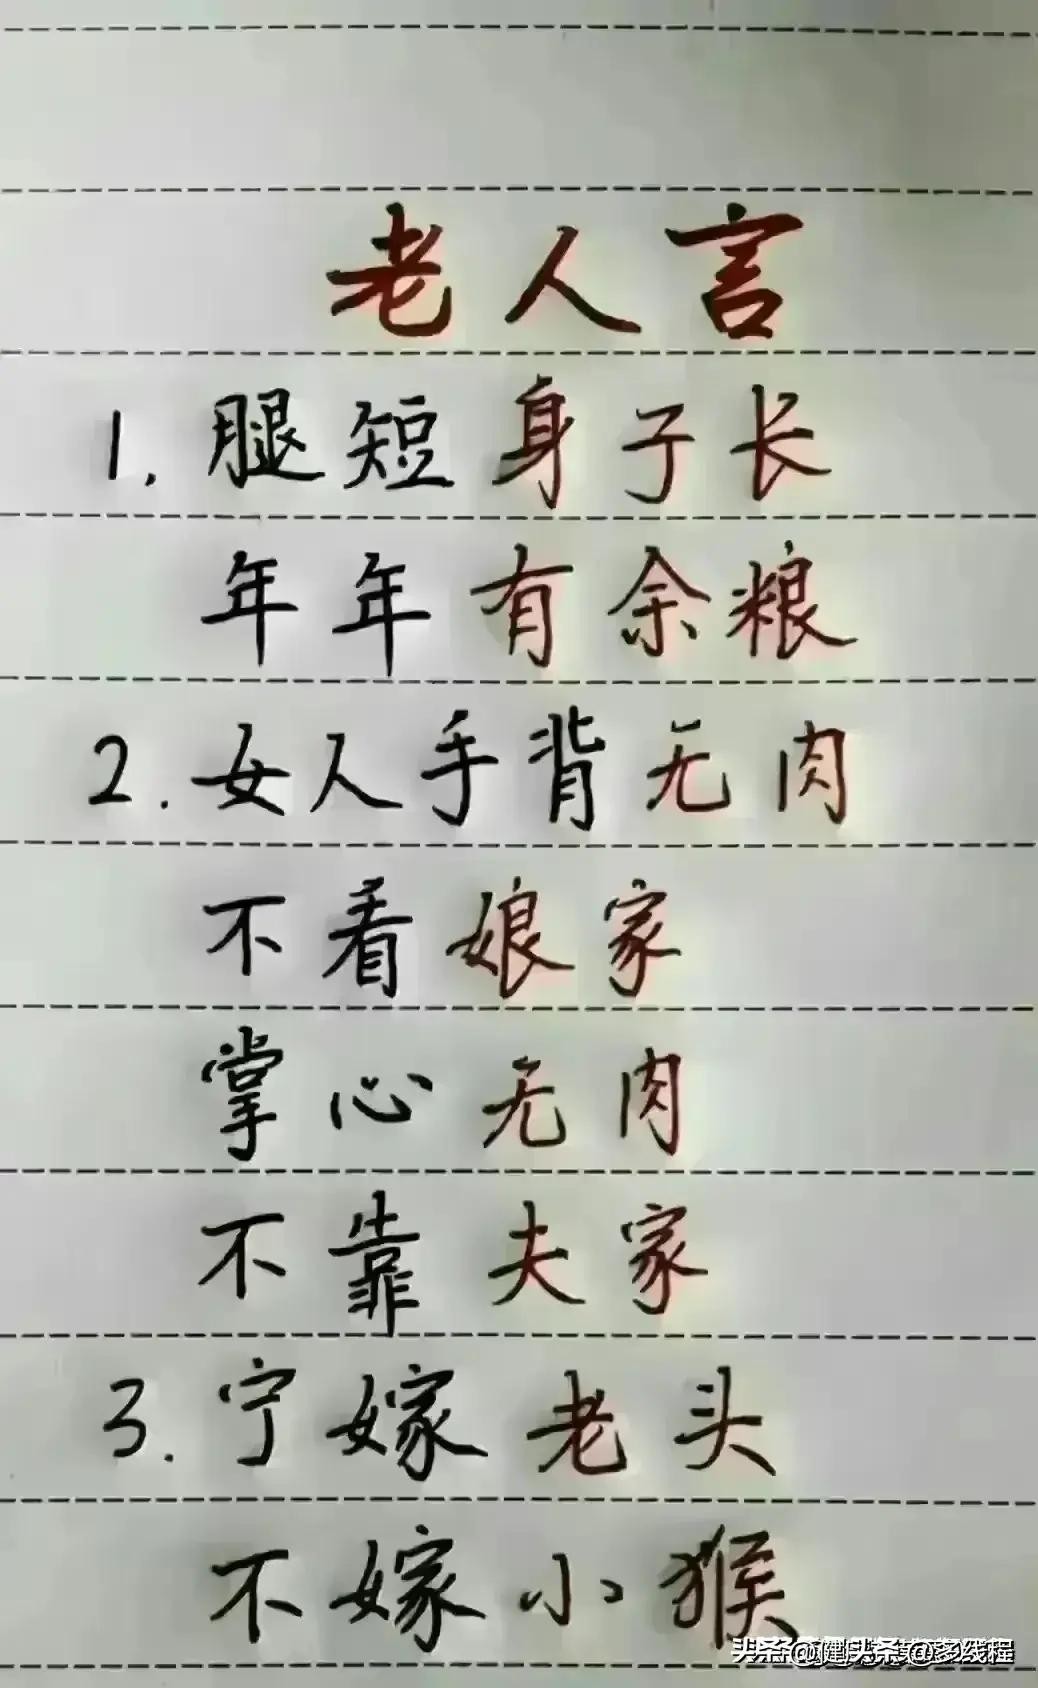 老人言
1.腿短身子长
年年有余粮
2.女人手背无肉
不看娘家
掌心无肉
不靠夫家
3.宁嫁老头
不嫁小猴
头条
@多线程